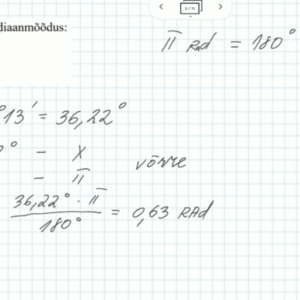 diaanmõõdus:
π Rad = 180°
°13' = 36,22°
0° – X
– π võrre
36,22° · π
180°
= 0,63 RAD